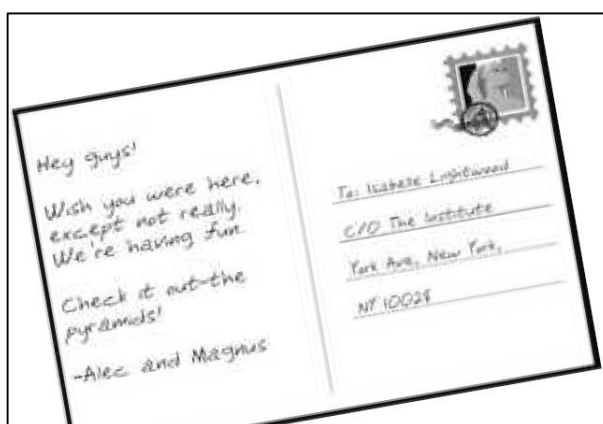 Hey guys!
Wish you were here,
except not really.
We're having fun
Check it out-the
pyramids!
-Alec and Magnus
To: Isabelle Lightwood
C/O The Institute
York Ave, New York,
NY 10028